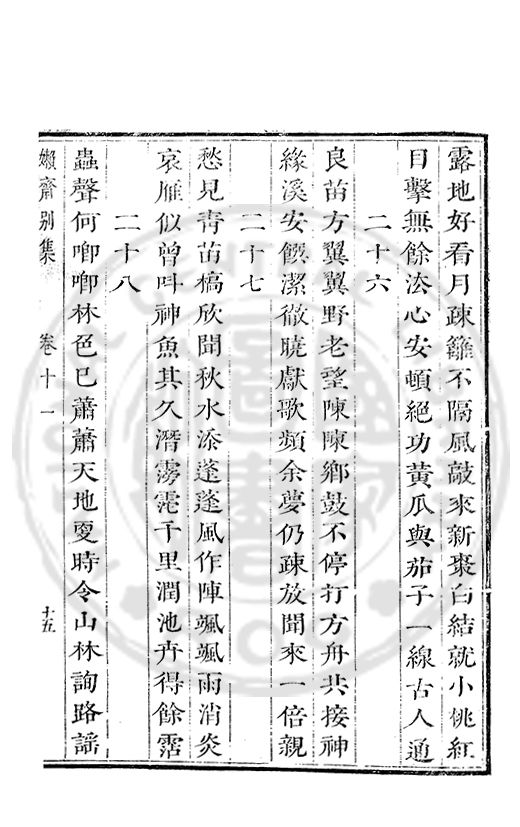 露地好看月疎籬不隔風敲來新棗白結就小桃紅
目擊無餘法心安頓絕功黃瓜與茄子一線古人通
二十六
良苗方翼翼野老望陳陳鄉鼓不停打方舟共接神
緣溪安饌潔徹曉獻歌頻余夢仍疎放聞來一倍親
二十七
愁見靑苗槁欣聞秋水添蓬蓬風作陣颯颯雨消炎
哀雁似曾叫神魚其久潛霶霓千里潤池卉得餘霑
二十八
蟲聲何喞喞林色已蕭蕭天地夏時令山林詢路謠
嬾齋别集
卷十一
十五